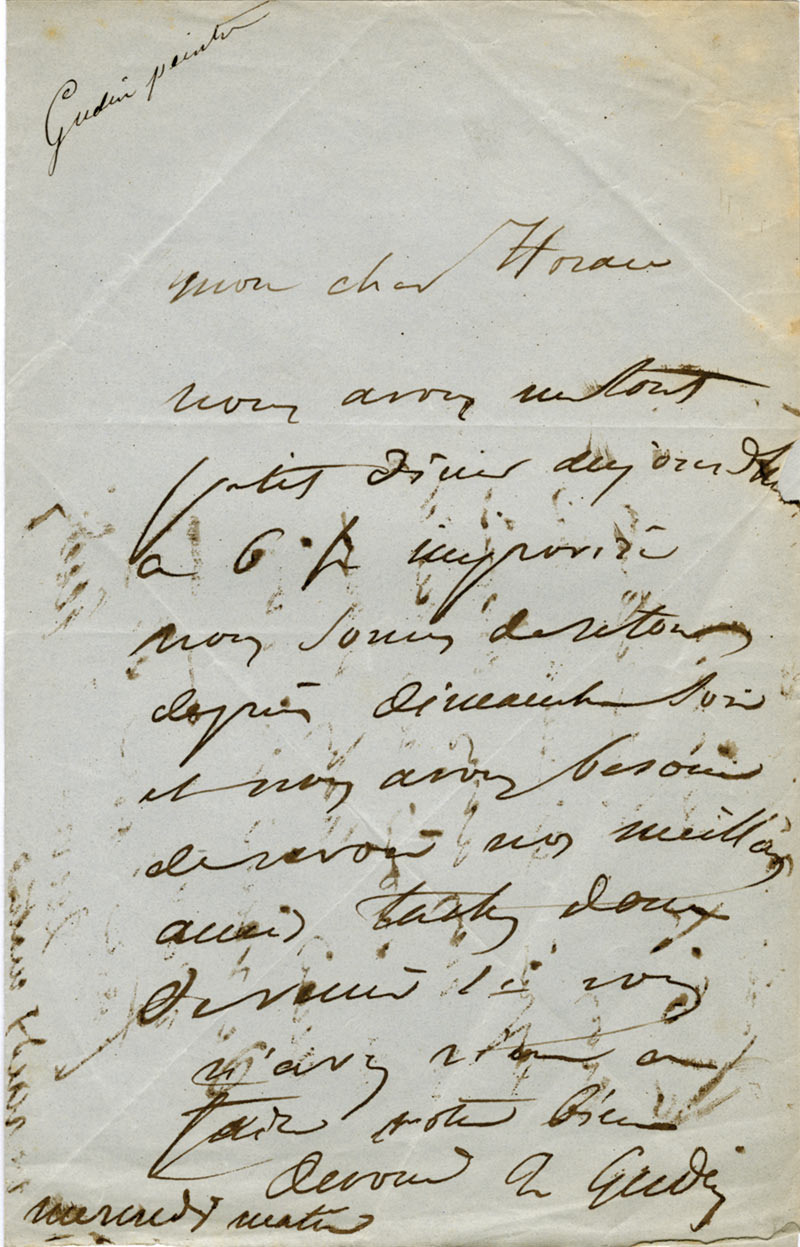 Gudin peintre
mon cher Horace
nous avons un tout
petit diner aujourd'hui
a 6 h improvisé
nous sommes de retour
depuis dimanche soir
et nous avons besoin
de revoir nos meilleurs
amis tachez donc
de venir si vous
n'avez rien a
faire votre bien
devoué Gudin
mercredi matin